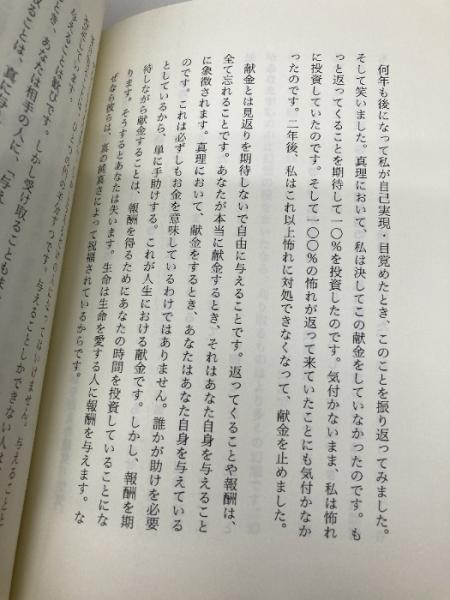 何年も後になって私が自己実現・目覚めたとき、このことを振り返ってみました。
そして笑いました。真理において、私は決してこの献金をしていなかったのです。も
っと返ってくることを期待して一〇％を投資したのです。気付かないまま、私は怖れ
に投資していたのです。そして一〇〇％の怖れが返って来ていたことにも気付かなか
ったのです。二年後、私はこれ以上怖れに対処できなくなって、献金を止めました。
献金とは見返りを期待しないで自由に与えることです。返ってくることや報酬は、
全て忘れることです。あなたが本当に献金するとき、それはあなた自身を与えること
に象徴されます。真理において、献金をするとき、あなたはあなた自身を与えている
のです。これは必ずしもお金を意味しているわけではありません。誰かが助けを必要
としているから、単に手助けする。これが人生における献金です。しかし、報酬を期
待しながら献金することは、報酬を得るためにあなたの時間を投資していることにな
ります。そうするとあなたは失います。生命は生命を愛する人に報酬を与えます。な
ぜなら彼らは、真の純真さによって祝福されているからです。
てはいけません。与えることと
与えることは歓びです。
与えることしかできない人は
とき、あなたは相手の人に、「与え
しかし受け取ることもま
ることは、真に与